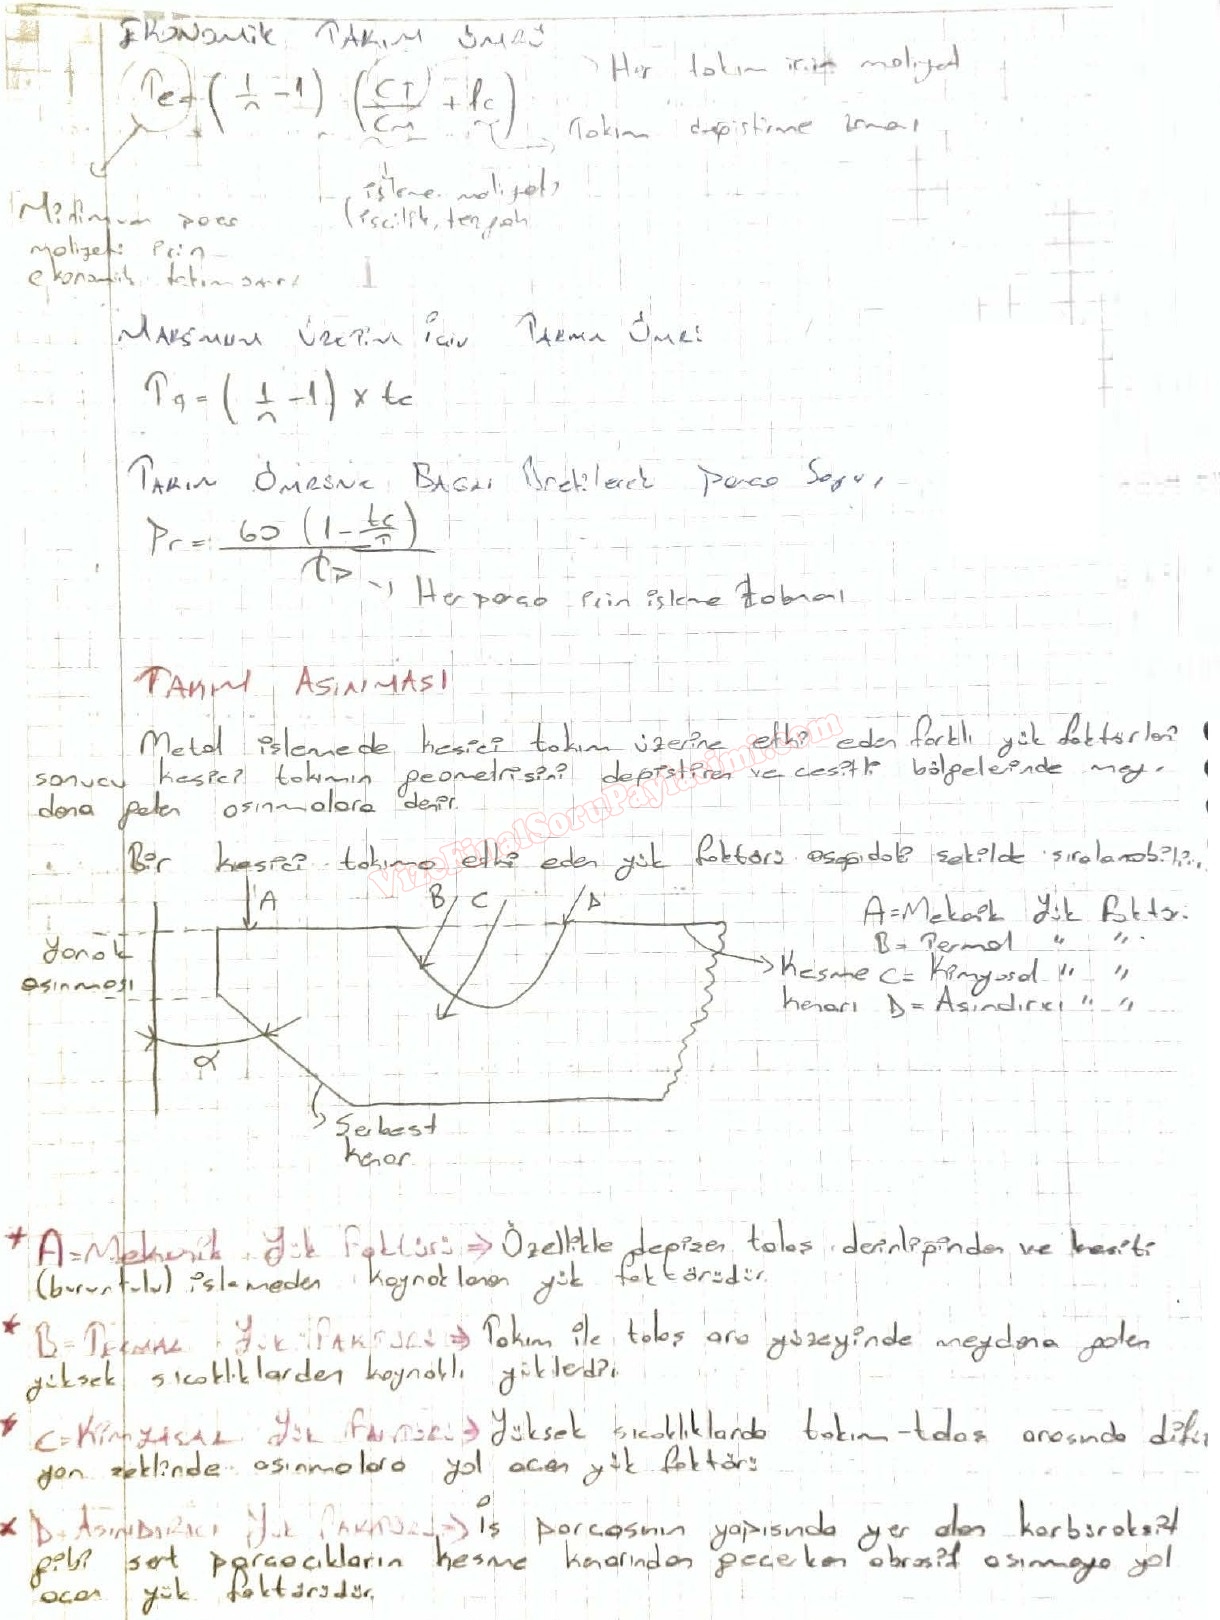 EKONOMİK TAKIM ÖMRÜ
Te = (1/n - 1) (CT/Cm + tc)
Her takım için maliyet
Takım değiştirme zamanı
işleme maliyeti
(işçilik, tezgah
Minimum parça
maliyeti için
ekonomik takım ömrü
MAKSİMUM ÜRETİM İÇİN TAKIM ÖMRÜ
Tq = (1/n - 1) x tc
TAKIM ÖMRÜNE BAĞLI Üretilecek parça Sayısı
Pr = 60 (1 - tc/T) / tp
Her parça için işleme zamanı
TAKIM AŞINMASI
Metal işlemede kesici takım üzerine etki eden farklı yük faktörleri
sonucu kesici takımın geometrisini değiştiren ve çeşitli bölgelerinde mey-
dana gelen aşınmalara denir.
Bir kesici takıma etki eden yük faktörü aşağıdaki şekilde sıralanabilir.
A B C D
A=Mekanik Yük faktör.
B= Termal " "
C= Kimyasal " "
D= Aşındırıcı " "
Yanak
aşınması
Kesme
kenarı
α
Serbest
kenar
* A=Mekanik Yük Faktörü => Özellikle değişen talaş derinliğinden ve kesiti
(buruntulu) işlemeden kaynaklanan yük faktörüdür.
* B=TERMAL YÜK FAKTÖRÜ => Takım ile talaş ara yüzeyinde meydana gelen
yüksek sıcaklıklardan kaynaklı yüklerdir.
* C=KİMYASAL YÜK FAKTÖRÜ => Yüksek sıcaklıklarda takım-talaş arasında difüz
yon şeklinde aşınmalara yol açan yük faktörü
* D=AŞINDIRICI Yük FAKTÖRÜ => İş parçasının yapısında yer alan karbür oksit
gibi sert parçacıkların kesme kenarından geçerken abrasif aşınmaya yol
açan yük faktörüdür.
VizeFinalSoruPaylasimi.com